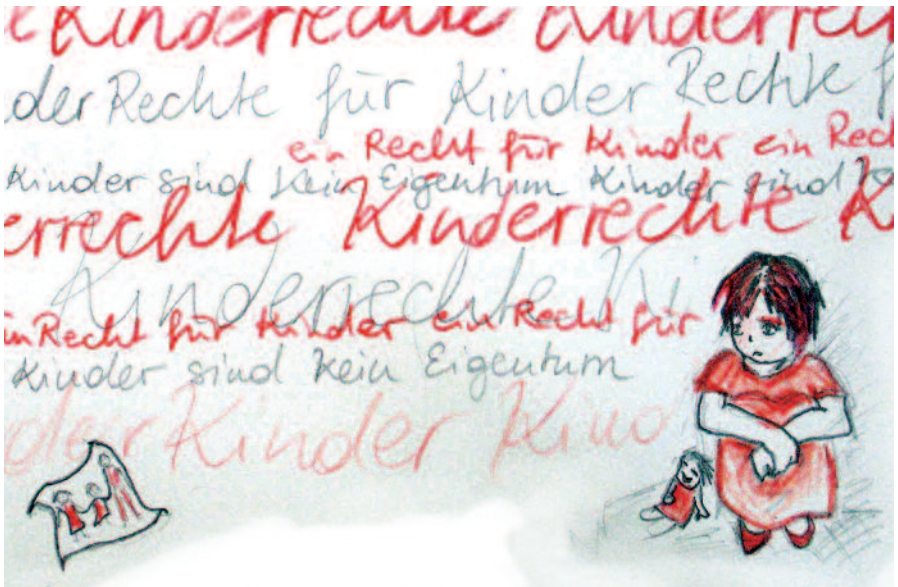 Kinderrechte Kinderrech
der Rechte für Kinder Rechte f
ein Recht für Kinder ein Rech
Kinder sind kein Eigentum Kinder sind
errechte Kinderrechte K
Kinderrechte Ki
in Recht für Kinder ein Recht für
Kinder sind kein Eigentum
der Kinder Kind